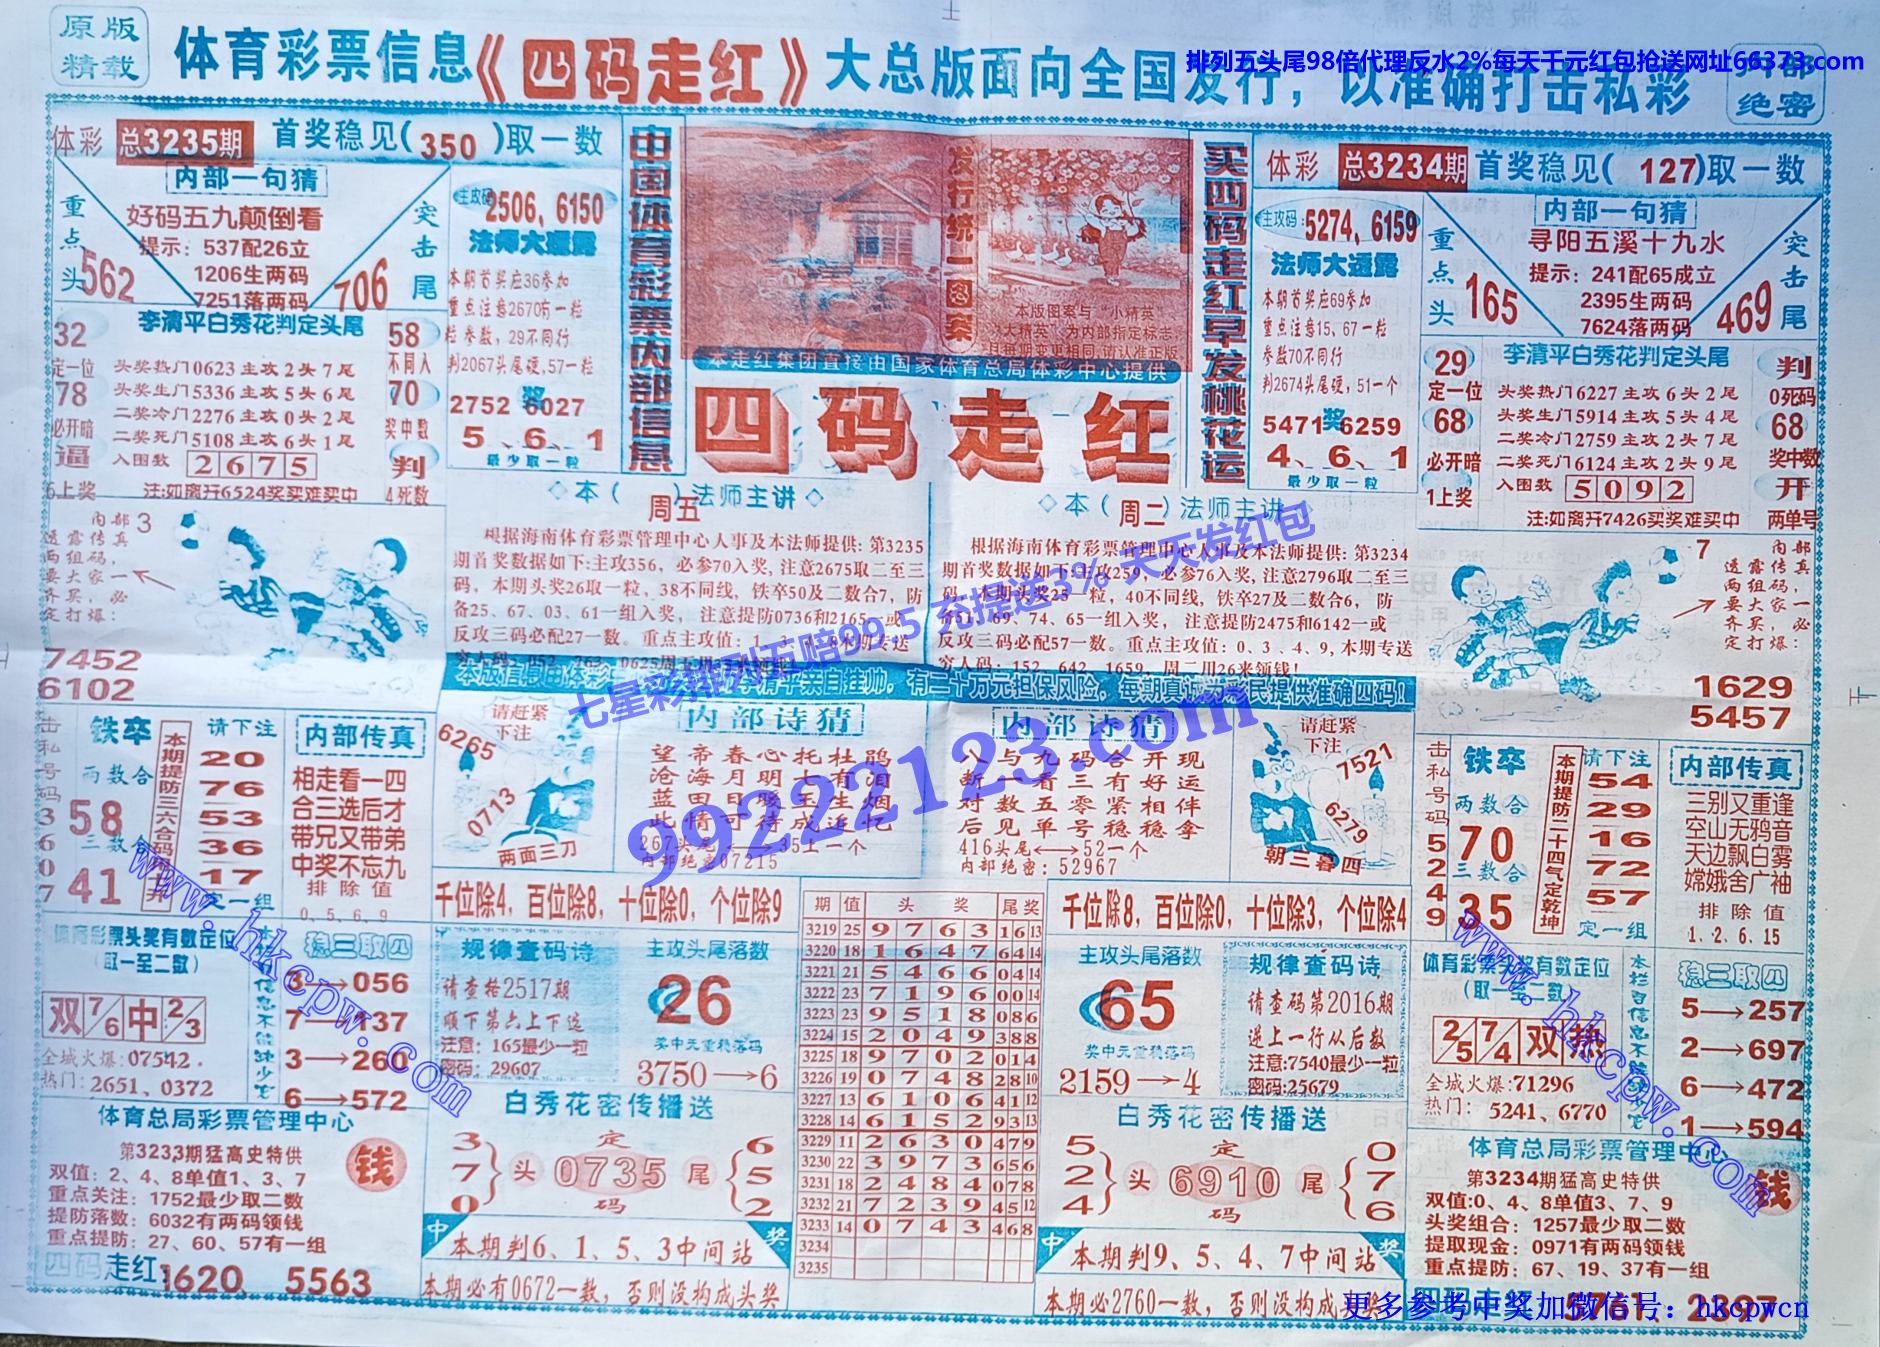 原版
精载
体育彩票信息《四码走红》大总版面向全国发行，以准确打击私彩
排列五头尾98倍代理反水2%每天千元红包抢送网址66373.com
绝密
体彩 总3235期 首奖稳见(350)取一数
内部一句猜
好码五九颠倒看
提示：537配26立
1206生两码
7251落两码
重点头
562
突击尾
706
主攻码
2506，6150
法师大透露
本期首奖应36参加
重点注意2670有一粒
粒参数，29不同行
判2067头尾硬，57一粒
奖
2752 6027
5、6、1
最少取一粒
李清平白秀花判定头尾
32
定一位
78
必开暗
逼
6上奖
头奖热门0623主攻2头7尾
头奖生门5336主攻5头6尾
二奖冷门2276主攻0头2尾
二奖死门5108主攻6头1尾
入围数 2675
注:如离开6524奖买难买中
58
不同入
70
奖中数
判
4死数
中国体育彩票内部信息
发行统一图案
本版图案与“小精英”
“大精英”为内部指定标志，
且每期变更相同，请认准正版
本走红集团直接由国家体育总局体彩中心提供
四码走红
买四码走红早发桃花运
体彩 总3234期 首奖稳见(127)取一数
主攻码：
5274，6159
法师大透露
本期首奖应69参加
重点注意15，67一粒
参数70不同行
判2674头尾硬，51一个
奖
5471 6259
4、6、1
最少取一粒
内部一句猜
寻阳五溪十九水
提示：241配65成立
2395生两码
7624落两码
重点头
165
突击尾
469
李清平白秀花判定头尾
29
定一位
68
必开暗
1上奖
头奖热门6227主攻6头2尾
头奖生门5914主攻5头4尾
二奖冷门2759主攻2头7尾
二奖死门6124主攻2头9尾
入围数 5092
注:如离开7426买奖难买中
判
0死码
68
奖中数
开
两单号
内部3
透露传真
两组码，
要大家一
齐买，必
定打爆：
7452
6102
◇本（周五）法师主讲◇
根据海南体育彩票管理中心人事及本法师提供：第3235
期首奖数据如下:主攻356，必参70入奖，注意2675取二至三
码，本期头奖26取一粒，38不同线，铁卒50及二数合7，防
备25、67、03、61一组入奖， 注意提防0736和2165一或
反攻三码必配27一数。重点主攻值：1、3
本期专送
◇本（周二）法师主讲
根据海南体育彩票管理中心人事及本法师提供：第3234
期首奖数据如下:主攻259，必参76入奖，注意2796取二至三
码，本期头奖25一粒，40不同线，铁卒27及二数合6， 防
备51、69、74、65一组入奖， 注意提防2475和6142一或
反攻三码必配57一数。重点主攻值：0、3、4、9，本期专送
穷人码：152，642，1659，周二用26来领钱！
7 内部
透露传真
两组码，
要大家一
齐买，必
定打爆：
1629
5457
李清平亲自挂帅，有二十万元担保风险，每期真诚为彩民提供准确四码！
七星彩排列五赔99.5 充提送3% 天天发红包
99222123.com
击私号码36072
铁卒
两数合
58
三数合
41
请下注
20
76
53
36
17
定一组
内部传真
相走看一四
合三选后才
带兄又带弟
中奖不忘九
排除值
0、5、6、9
请赶紧
下注
6265
0713
两面三刀
内部诗猜
望帝春心托杜鹃
沧海月明
蓝田日暖玉生烟
此情可待成追忆
内部绝密07215
内部诗猜
八与九码合开现
看三有好运
对数五零紧相伴
后见单号稳稳拿
416头尾←→52一个
内部绝密：52967
请赶紧
下注
7521
6279
朝三暮四
击私号码5249
铁卒
两数合
70
三数合
35
本期提防二十四气定乾坤
请下注
54
29
16
72
57
定一组
内部传真
三别又重逢
空山无鸦音
天边飘白雾
嫦娥舍广袖
排除值
1、2、6、15
千位除4，百位除8，十位除0，个位除9
千位除8，百位除0，十位除3，个位除4
体育彩票头奖有数定位
(取一至二数)
双 7/6 中 2/3
全城火爆：07542
热门：2651、0372
稳三取四
3→056
7→137
3→260
6→572
规律查码诗
请查格2517期
顺下第六上下选
注意：165最少一粒
密码：29607
主攻头尾落数
26
奖中元重稳落码
3750→6
期 值 头奖 尾奖
3219 25 9763 16 13
3220 18 1647 64 14
3221 21 5466 04 14
3222 23 7196 00 14
3223 23 9518 08 6
3224 15 2049 38 8
3225 18 9702 01 4
3226 19 0748 28 10
3227 13 6106 41 12
3228 14 6152 93 13
3229 11 2630 47 9
3230 22 3973 65 6
3231 18 2484 07 8
3232 21 7239 45 12
3233 14 0743 46 8
3234
3235
主攻头尾落数
65
奖中元重稳落码
2159→4
规律查码诗
请查码第2016期
递上一行从后数
注意:7540最少一粒
密码:25679
体育彩票头奖有数定位
(取一至二数)
2/5 7/4 双 热
全城火爆:71296
热门： 5241、6770
稳三取四
5→257
2→697
6→472
1→594
体育总局彩票管理中心
第3233期猛高史特供
双值：2、4、8单值1、3、7
重点关注：1752最少取二数
提防落数：6032有两码领钱
重点提防：27、60、57有一组
钱
四码走红 1620、5563
白秀花密传播送
3
7
0
头
定
0735
码
尾
6
5
2
中 奖
本期判6、1、5、3中间站
本期必有0672一数，否则没构成头奖
白秀花密传播送
5
2
4
头
定
6910
码
尾
0
7
6
中 奖
本期判9、5、4、7中间站
本期必2760一数，否则没构成头奖
体育总局彩票管理中心
第3234期猛高史特供
双值:0、4、8单值3、7、9
头奖组合：1257最少取二数
提取现金：0971有两码领钱
重点提防：67、19、37有一组
钱
5761、2397
www.hkcpw.com
www.hkcpw.com
更多参考中奖加微信号：hkcpwcn